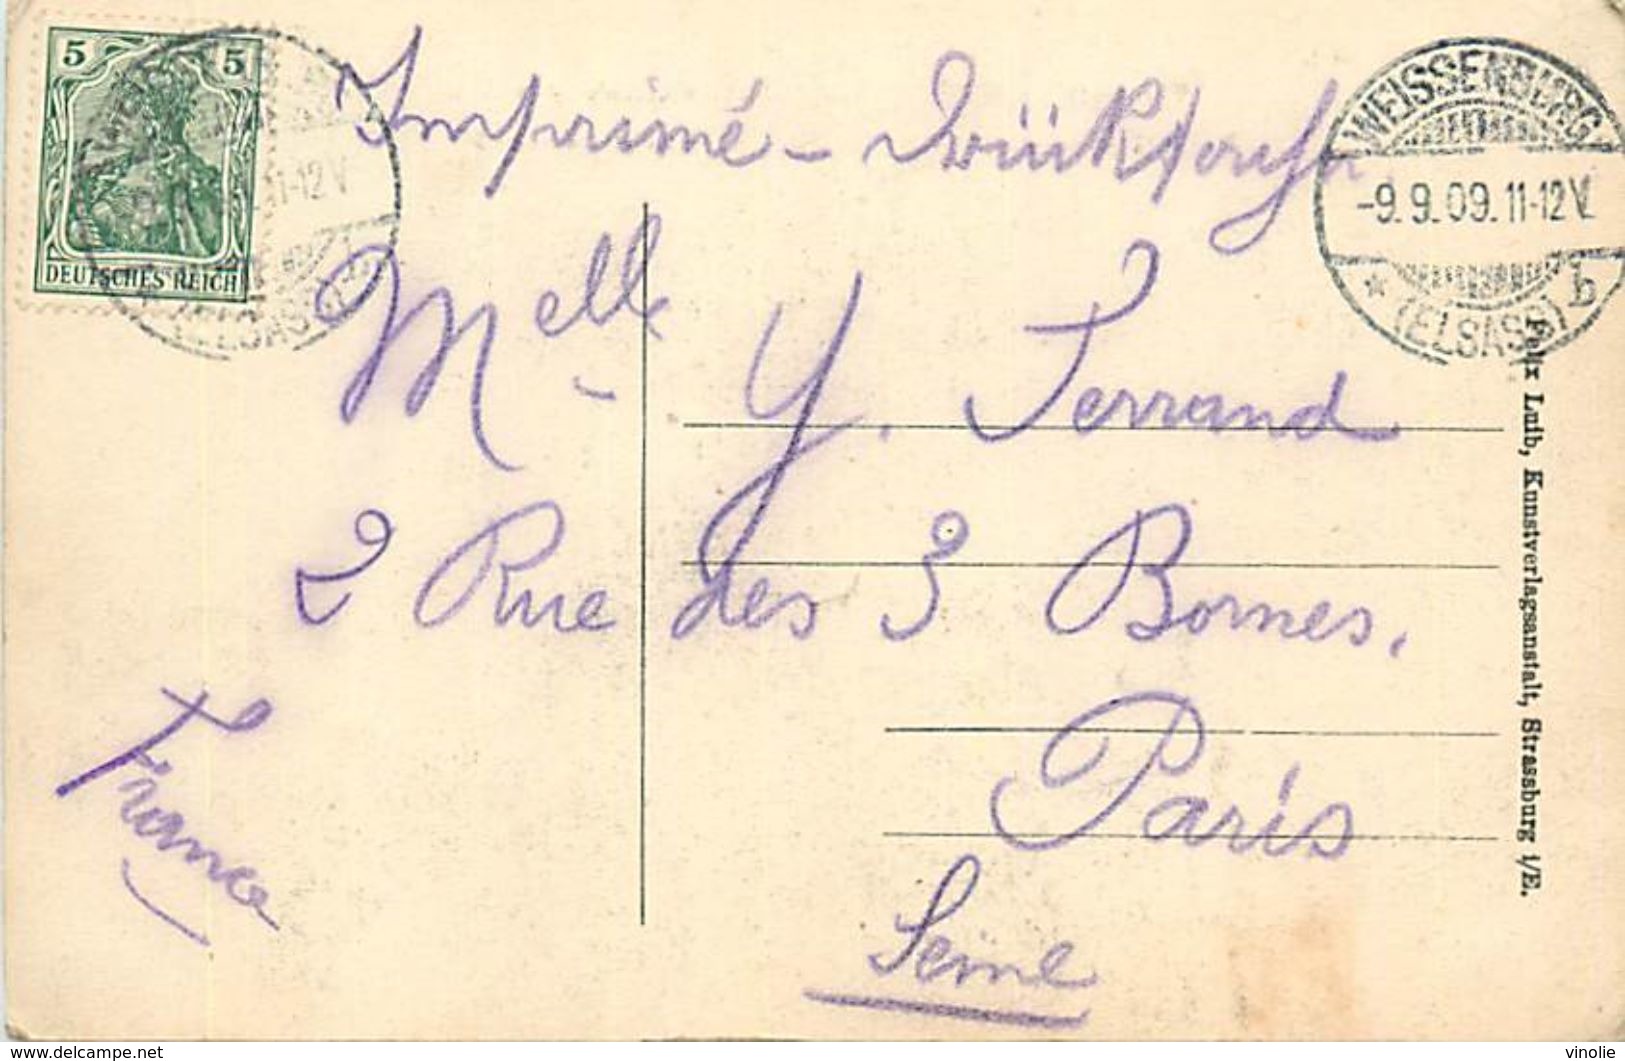 5 5
DEUTSCHES REICH
Imprimé -
WEISSENBURG
-9.9.09.11-12V.
* (ELSASS) b
11-12V
Melle Y. Ferrand
2 Rue des 3 Bornes.
Paris
Seine
France
Felix Luib, Kunstverlagsanstalt, Strassburg i/E.
delcampe.net
vinolie